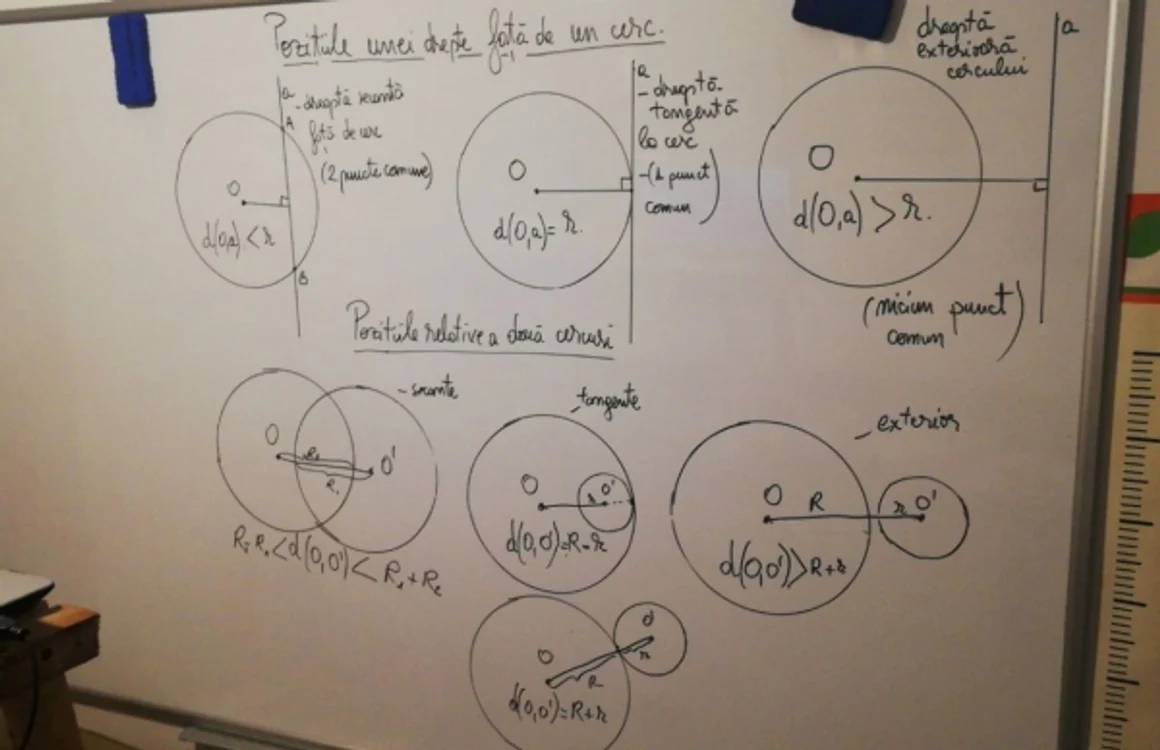 Pozițiile unei drepte față de un cerc.
a
- dreaptă secantă
A
față de cerc
(2 puncte comune)
O
d(O,a) < r
B
a
- dreaptă
tangentă
la cerc
- (1 punct
comun)
O
d(O,a) = r.
dreaptă
exterioară
cercului
a
O
d(O,a) > r.
(niciun punct
comun)
Pozițiile relative a două cercuri
- secante
O
O'
R₁
d(O,O') < R₁ + R₂
- tangente
O
O'
r
d(O,O') = R - r
- exterior
O
R
r
O'
d(O,O') > R + r
O
O'
R
r
d(O,O') = R + r